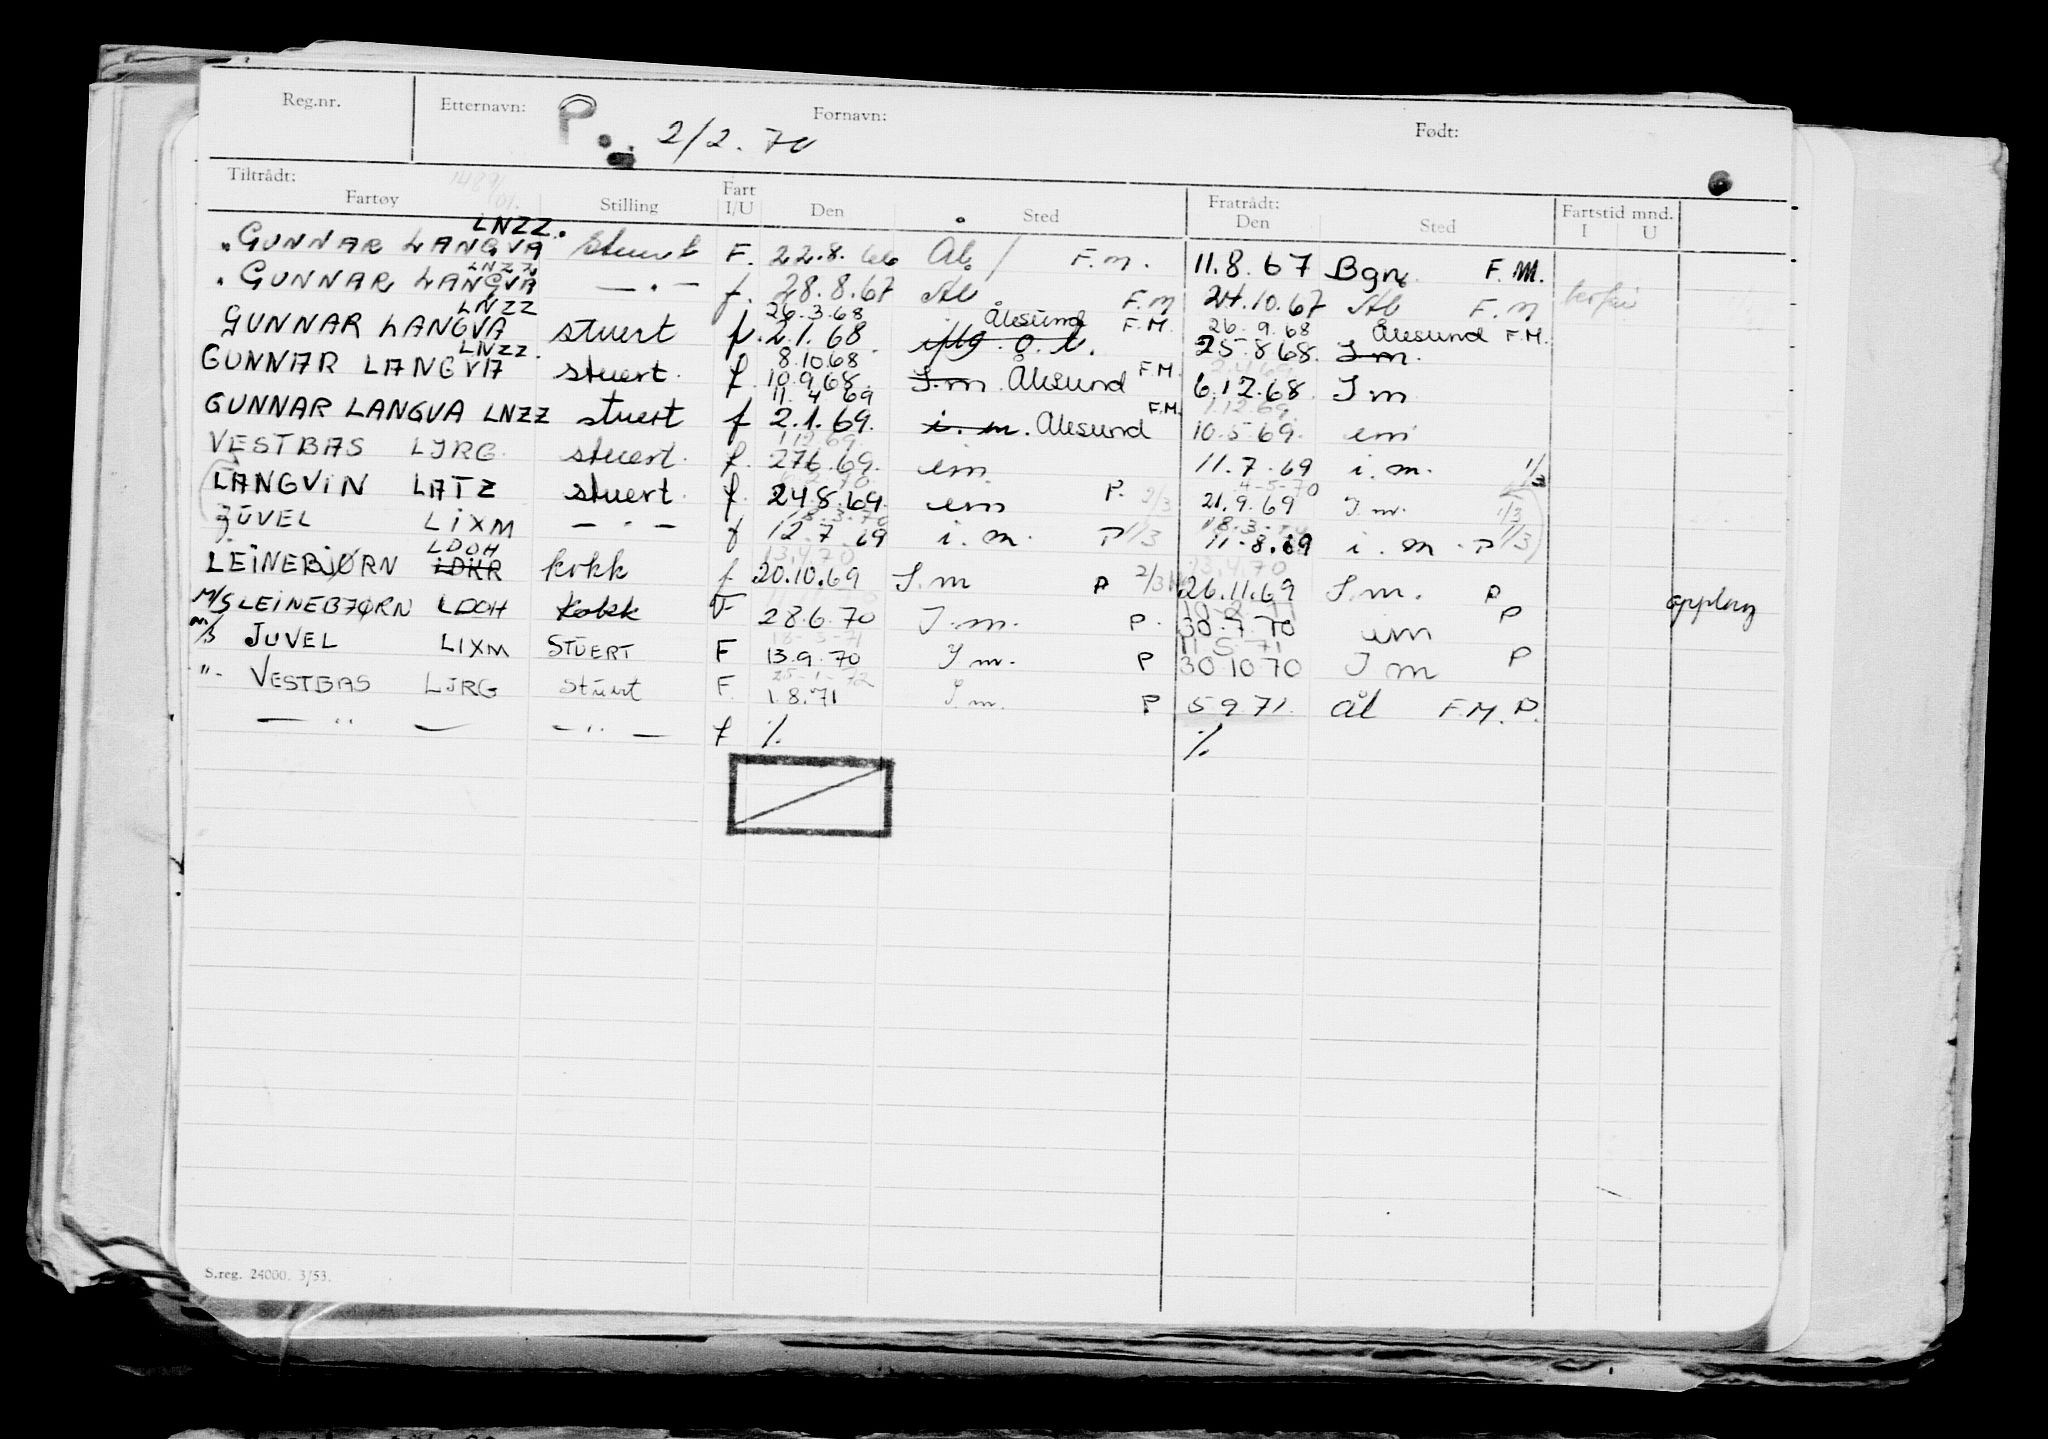 Reg.nr. Etternavn: P. 2/2.70 Fornavn: Født:
Tiltrådt: Fartøy Stilling Fart I/U Den Sted Fratrådt: Den Sted Fartstid mnd. I U
LNZZ.
GUNNAR LANGVA Stuert F. 22.8.66 Ål. / F.M. 11.8.67 Bgn. F.M.
LNZZ
GUNNAR LANGVA — " — f. 28.8.67 Ål F.M 24.10.67 Ål F.M
LNZZ 26.3.68 Ålesund F.M. 26.9.68 Ålesund F.M.
GUNNAR LANGVA stuert f. 2.1.68 25.8.68. I.m.
LNZZ. 8.10.68
GUNNAR LANGVA stuert. f. 10.9.68. I.m. Ålesund F.M. 6.12.68 I m
11.4.69
GUNNAR LANGVA LNZZ stuert f 2.1.69. i.m. Ålesund F.M. 10.5.69. em
VESTBAS LJRG. stuert. f. 27.6.69. em 11.7.69 i.m. 1/3
LANGVIN LATZ stuert. f. 24.8.69. em P. 2/3 21.9.69 I.m. 1/3
JUVEL LIXM — " — f 12.7.69 i.m. P 1/3 11.8.69 i.m. P 1/3
LDOH
LEINEBJØRN LDKR kokk f 20.10.69 I.m P 2/3 26.11.69 I.m. P opplag
M/S LEINEBJØRN LDOH Kokk F 28.6.70 I.m. P. 30.7.70 em P
M/S JUVEL LIXM STUERT F 13.9.70 I m. P 30 10 70 I m P
" VESTBAS LJRG Stuert F. 1.8.71 I m. P 5 9 71. Ål F.M. P.
— " — — " — f %. %.
S.reg. 24000. 3/53.